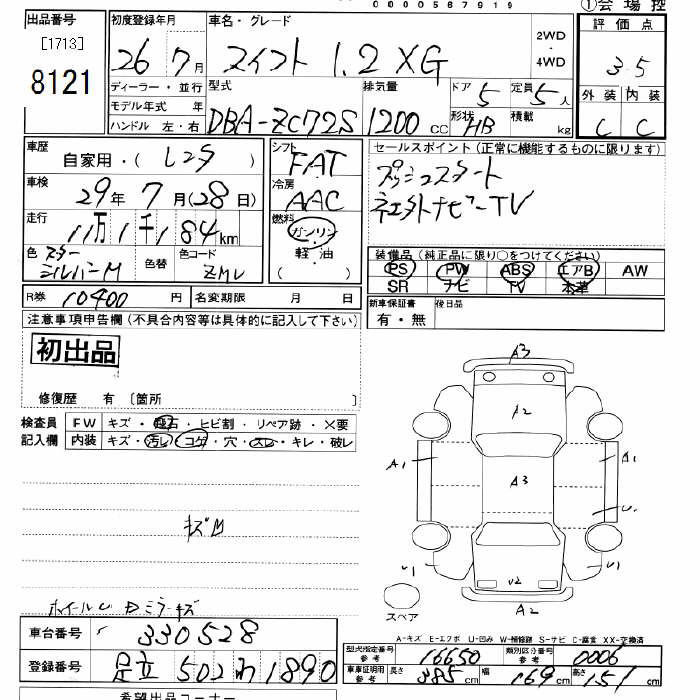 0000567919
①会場控
出品番号
[1713]
8121
初度登録年月
26年7月
車名・グレード
スイフト 1.2 XG
2WD
・
4WD
評価点
3.5
外装 内装
C C
ディーラー・並行
モデル年式 年
ハンドル 左・右
型式
DBA-ZC72S
排気量
1200cc
ドア
5
定員
5人
形状
HB
積載
kg
車歴
自家用・(レンタ)
車検
29年7月(28日)
走行
11万1千184km
色 スター
シルバーM
色替
色コード
ZMU
シフト
FAT
冷房
AAC
燃料
ガソリン
・
軽油
( )
セールスポイント(正常に機能するものに限ります)
プッシュスタート
社外ナビーTV
装備品(純正品に限り○をつけてください)
PS PW ABS エアB AW
SR ナビ TV 本革
新車保証書
有・無
後日品
R券 10400円
名変期限 月 日
注意事項申告欄(不具合内容等は具体的に記入して下さい)
初出品
修復歴 有 〔箇所 〕
検査員
記入欄
FW キズ・飛石・ヒビ割・リペア跡・X要
内装 キズ・汚れ・コゲ・穴・スレ・キレ・破レ
キズM
ホイールU Dミラーキズ
A3
A2
A1
A3
A1
U1
U1
U2
A2
スペア
A-キズ E-エクボ U-凹み W-補修跡 S-サビ C-腐食 XX-交換済
車台番号
330528
登録番号
足立 502 わ 1890
型式指定番号
参考
16650
類別区分番号
参考
0006
車車証明用
参考
長さ
385cm
幅
169cm
高さ
151cm
希望出品コーナー